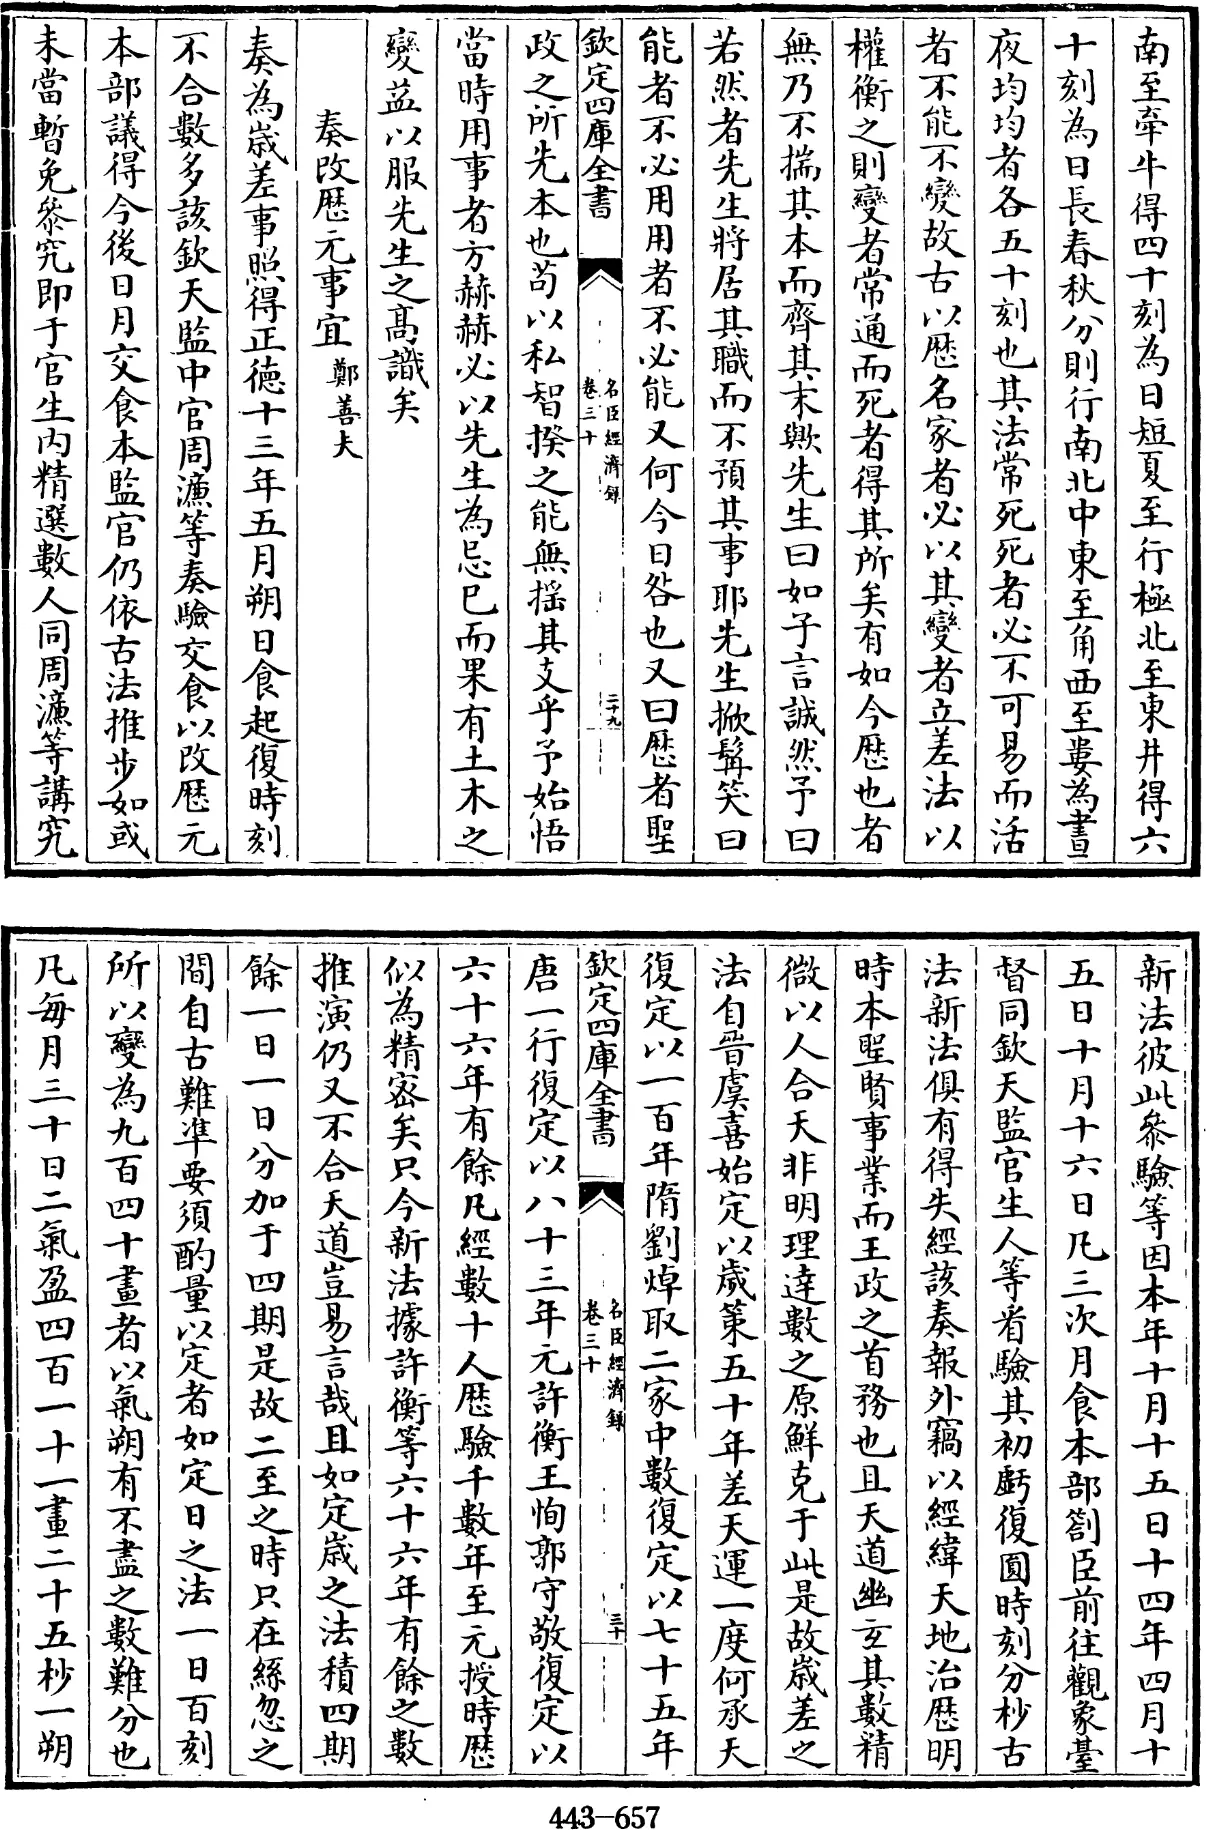 南至牽牛得四十刻為日短夏至行極北至東井得六
十刻為日長春秋分則行南北中東至角西至婁為晝
夜均均者各五十刻也其法常死死者必不可易而活
者不能不變故古以歷名家者必以其變者立差法以
權衡之則變者常通而死者得其所矣有如今歷也者
無乃不揣其本而齊其末歟先生曰如子言誠然予曰
若然者先生將居其職而不預其事耶先生掀髯笑曰
能者不必用用者不必能又何今日咎也又曰歷者聖
欽定四庫全書
名臣經濟録
卷三十
二十九
政之所先本也苟以私智揆之能無揺其支乎予始悟
當時用事者方赫赫必以先生為忌已而果有土木之
變益以服先生之髙識矣
奏改歷元事宜 鄭善夫
奏為歳差事照得正德十三年五月朔日食起復時刻
不合數多該欽天監中官周濂等奏驗交食以改歷元
本部議得今後日月交食本監官仍依古法推步如或
未當暫免叅究即于官生内精選數人同周濂等講究
新法彼此叅驗等因本年十月十五日十四年四月十
五日十月十六日凡三次月食本部劄臣前往觀象臺
督同欽天監官生人等㸔驗其初虧復圓時刻分杪古
法新法俱有得失經該奏報外竊以經緯天地治歷明
時本聖賢事業而王政之首務也且天道幽玄其數精
微以人合天非明理達數之原鮮克于此是故歳差之
法自晉虞喜始定以歳策五十年差天運一度何承天
復定以一百年隋劉焯取二家中數復定以七十五年
欽定四庫全書
名臣經濟録
卷三十
三十
唐一行復定以八十三年元許衡王恂郭守敬復定以
六十六年有餘凡經數十人歷驗千數年至元授時歷
似為精宻矣只今新法據許衡等六十六年有餘之數
推演仍又不合天道豈易言哉且如定歳之法積四期
餘一日一日分加于四期是故二至之時只在絲忽之
間自古難凖要須酌量以定者如定日之法一日百刻
所以變為九百四十畫者以氣朔有不盡之數難分也
凡毎月三十日二氣盈四百一十一畫二十五杪一朔
443-657